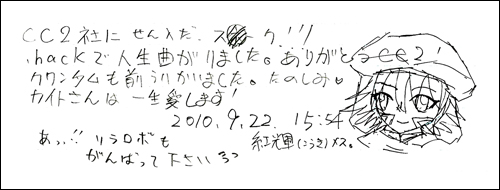 CC2社に せん入だ. スネーク!!!
.hackで人生曲がりました。ありがとうCC2!
クワンタムも前うりがいました。たのしみ♥
カイトさんは一生愛します!
2010.9.22. 15:54
あっ..!! リラロボも 紅輝(こうき)メス。
がんばって下さいろっ